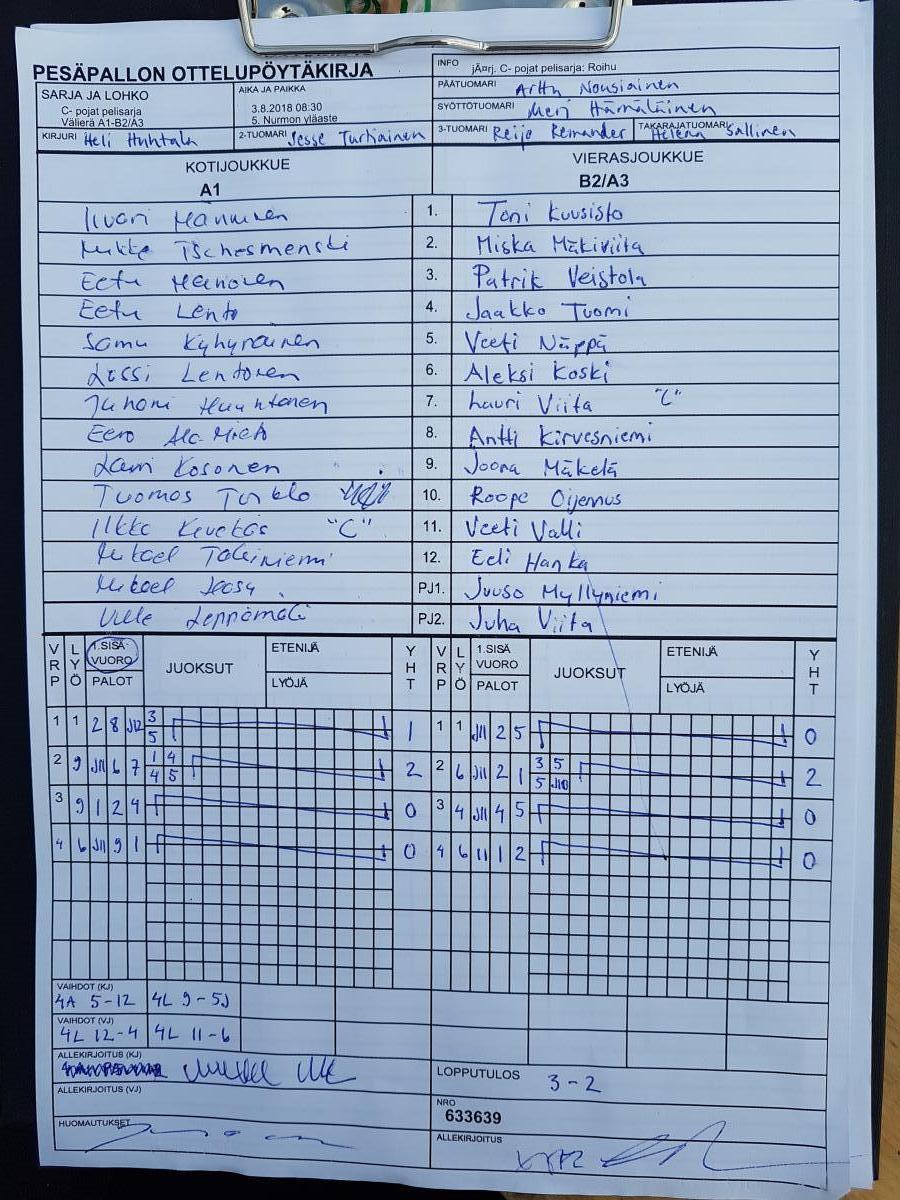 PESÄPALLON OTTELUPÖYTÄKIRJA
SARJA JA LOHKO
C- pojat pelisarja
Välierä A1-B2/A3
AIKA JA PAIKKA
3.8.2018 08:30
5. Nurmon yläaste
INFO jÃ¤rj. C- pojat pelisarja: Roihu
PÄÄTUOMARI Arttu Nousiainen
SYÖTTÖTUOMARI Meri Hämäläinen
KIRJURI Heli Huhtala
2-TUOMARI Jesse Turkiainen
3-TUOMARI Reijo Remander
TAKARAJATUOMARI Helena Sallinen
KOTIJOUKKUE
A1
VIERASJOUKKUE
B2/A3
Iivari Manninen 1. Toni Kuusisto
Mikke Tschesmenski 2. Miska Mäkiviita
Eetu 3. Patrik Veistola
Eetu Lento 4. Jaakko Tuomi
Samu Kyhyräinen 5. Veeti Näppä
Lassi Lentonen 6. Aleksi Koski
Juhani Huuhtanen 7. Lauri Viita "C"
Eero Ala-Mieto 8. Antti Kirvesniemi
Lauri Kosonen 9. Joona Mäkelä
Tuomas Turkla 10. Roope Oijennus
Ilkka Kivekäs "C" 11. Veeti Valli
Mikael 12. Eeli Hanka
Mikael PJ1. Juuso Myllyniemi
Ville Leppämäki PJ2. Juha Viita
VRP LYÖ 1.SISÄ VUORO PALOT JUOKSUT ETENIJÄ LYÖJÄ YHT VRP LYÖ 1.SISÄ VUORO PALOT JUOKSUT ETENIJÄ LYÖJÄ YHT
1 1 2 8 J12 3 1 1 1 J11 2 5 0
5
2 9 J11 6 7 1 4 2 2 6 J11 2 1 3 5 2
4 5 5 J10
3 9 1 2 4 0 3 4 J11 4 5 0
4 6 J11 9 1 0 4 6 11 1 2 0
VAIHDOT (KJ)
4A 5-12 4L 9-5J
VAIHDOT (VJ)
4L 12-4 4L 11-6
ALLEKIRJOITUS (KJ)
LOPPUTULOS 3-2
ALLEKIRJOITUS (VJ)
NRO
633639
HUOMAUTUKSET
ALLEKIRJOITUS